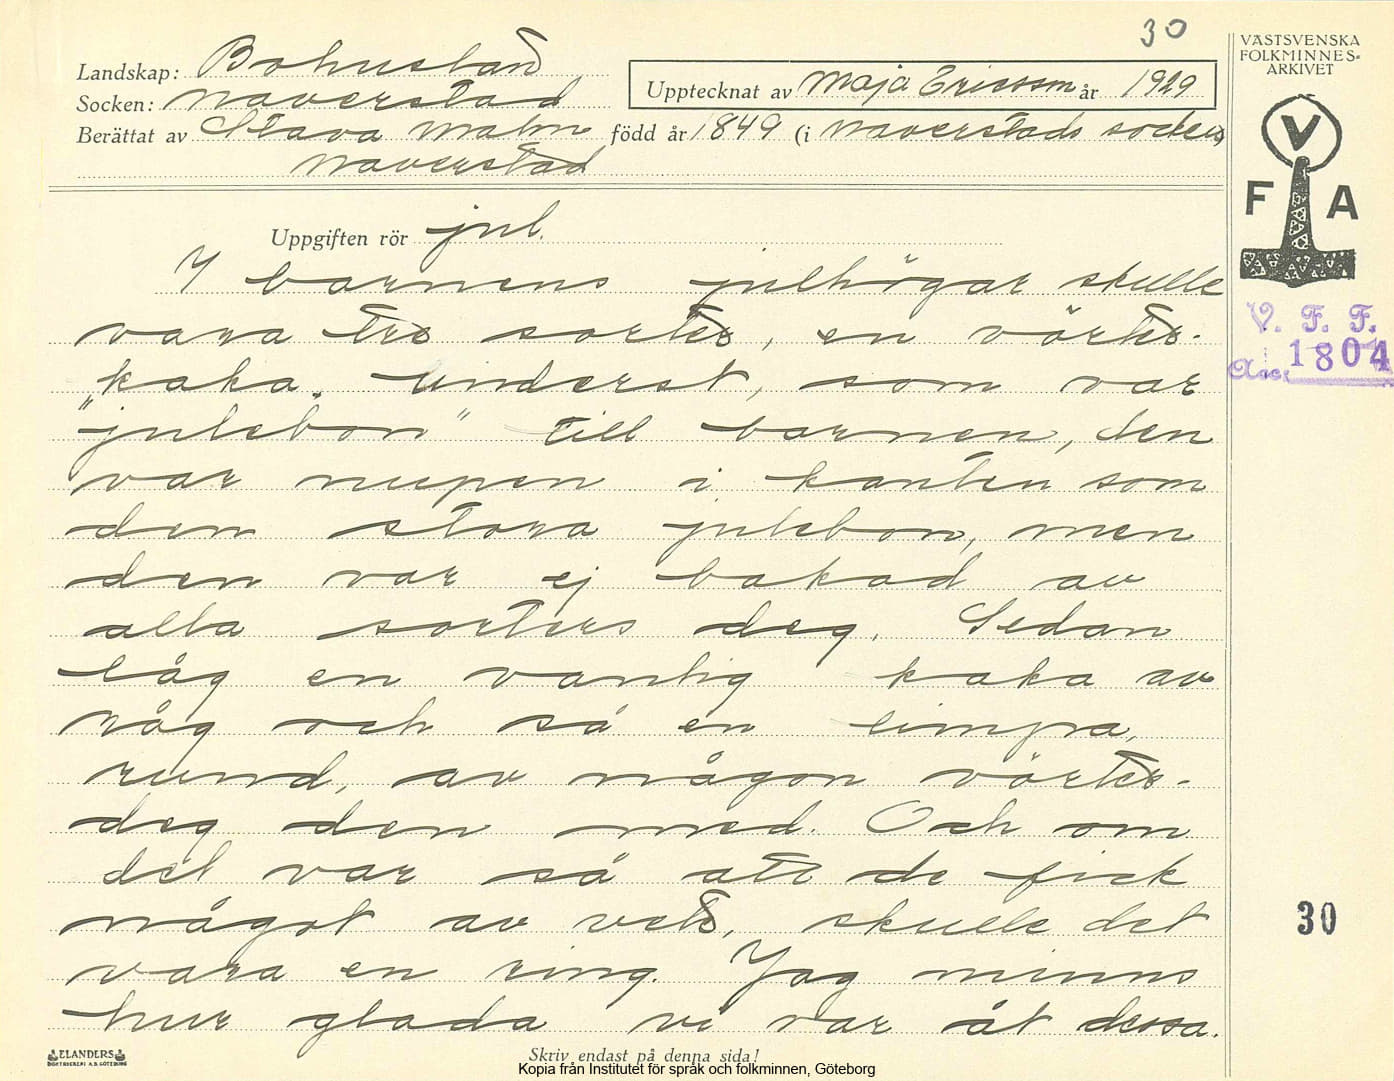 30
VÄSTSVENSKA
FOLKMINNES-
ARKIVET
Landskap: Bohuslän
Socken: Naverstad
Upptecknat av Maja Ericsson år 1929
Berättat av Stava Malm född år 1849 (i Naverstads socken,
Naverstad
V
F A
Uppgiften rör jul.
I barnens julhögar skulle
vara tre sorter, en vörte-
kaka. underst, som var
"julebon" till barnen, den
var nupen i kanten som
den stora julebon, men
den var ej bakad av
alla sorters deg. Sedan
låg en vanlig kaka av
råg och så en limpa,
rund, av någon vörte-
deg den med. Och om
det var så att de fick
något av vete, skulle det
vara en ring. Jag minns
hur glada vi var åt dessa.
V. F. F.
Acc. 1804
30
ELANDERS
BOKTRYCKERI A.B. GÖTEBORG
Skriv endast på denna sida!
Kopia från Institutet för språk och folkminnen, Göteborg